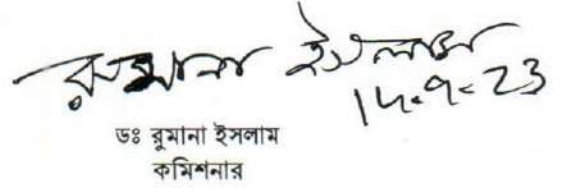 রুমানা ইসলাম
ডঃ রুমানা ইসলাম
কমিশনার